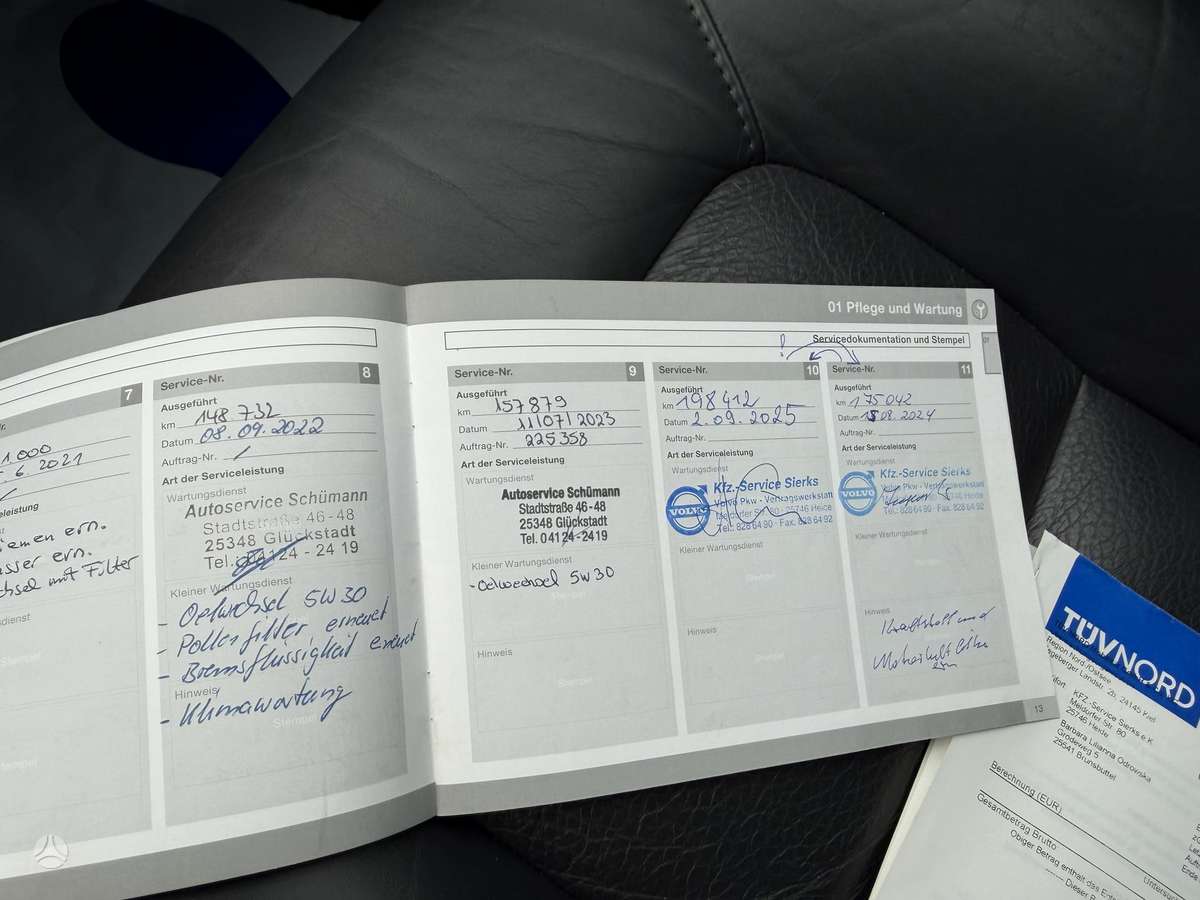 01 Pflege und Wartung
Servicedokumentation und Stempel
7
1.000
6 2021
iemen ern.
asser ern.
chsel mit Filter
Service-Nr. 8
Ausgeführt
km 148 732
Datum 08.09.2022
Auftrag-Nr. /
Art der Serviceleistung
Wartungsdienst
Autoservice Schümann
Stadtstraße 46-48
25348 Glückstadt
Tel. 04124 - 24 19
Kleiner Wartungsdienst
- Oelwechsel 5W30
- Pollenfilter erneuert
- Bremsflüssigkeit erneuert
Hinweis
- Klimawartung
Stempel
Service-Nr. 9
Ausgeführt
km 157879
Datum 11/07/2023
Auftrag-Nr. 225358
Art der Serviceleistung
Wartungsdienst
Autoservice Schümann
Stadtstraße 46-48
25348 Glückstadt
Tel. 04124-2419
Kleiner Wartungsdienst
- Oelwechsel 5W30
Stempel
Hinweis
Stempel
!
Service-Nr. 10
Ausgeführt
km 198412
Datum 2.09.2025
Auftrag-Nr.:
Art der Serviceleistung
Wartungsdienst
Kfz.-Service Sierks
VOLVO
Volvo Pkw - Vertragswerkstatt
Meldorfer Str. 80 · 25746 Heide
Tel.: 828 64 90 · Fax: 828 64 92
Kleiner Wartungsdienst
Stempel
Hinweis
Stempel
Service-Nr. 11
Ausgeführt
km 175042
Datum 15 08.2024
Auftrag-Nr.:
Art der Serviceleistung
Wartungsdienst
Kfz.-Service Sierks
VOLVO
Volvo Pkw - Vertragswerkstatt
25746 Heide
Tel.: 828 64 90 · Fax: 828 64 92
Kleiner Wartungsdienst
Stempel
Hinweis
Kraftstoff und
13
TÜVNORD
Region Nord /Ostsee
Segeberger Landstr. 2b, 24145 Kiel
KFZ.-Service Sierks e.K
Meldorfer Str. 80
25746 Heide
Barbara Lilianna Odrovnska
Grodeweg 5
25541 Brunsbüttel
Berechnung (EUR)
Gesamtbetrag Brutto
Obiger Betrag enthält das
Dieser